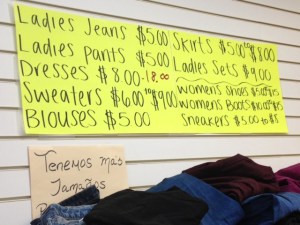 Ladies Jeans $5.00
Ladies pants $5.00
Dresses $8.00-18.00
Sweaters $6.00 to $9.00
Blouses $5.00
Skirts $5.00 to $8.00
Ladies Sets $9.00
Womens Shoes
Womens Boots
Sneakers $5.00 to $8
Tenemos mas
Tamaños